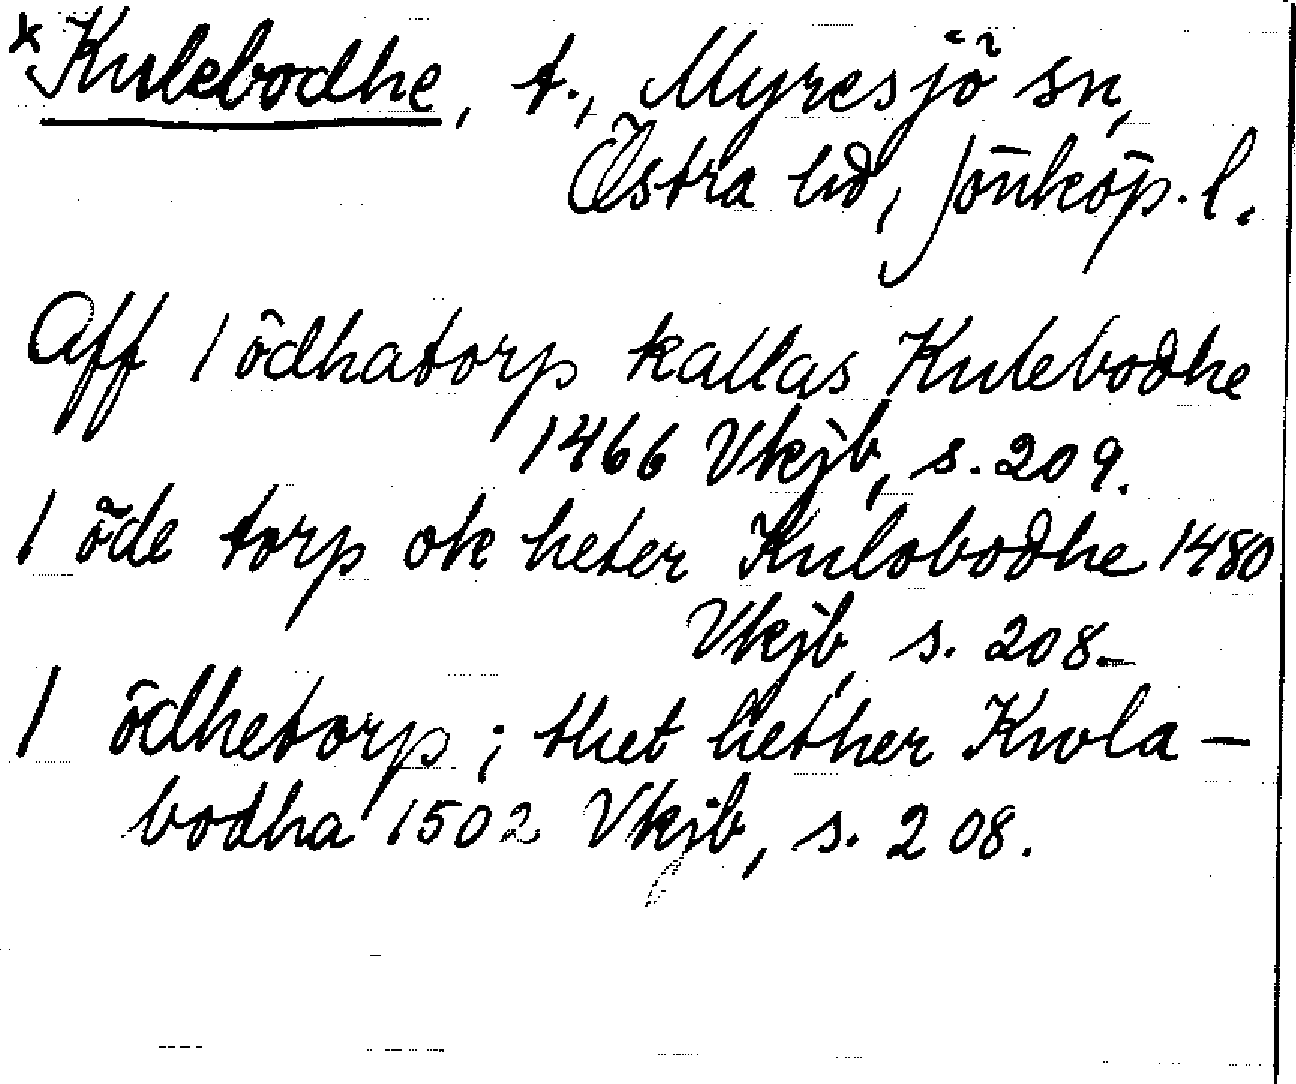 * Kulebodhe, t., Myresjö sn,
Östra hd, Jönköp. l.
Aff 1 ödhatorp kallas Kulebodhe
1466 Vkjb, s. 209.
1 öde torp ok heter Kulobodhe 1480
Vkjb, s. 208.
1 ödhetorp; thet hether Kwla-
bodha 1502 Vkjb, s. 208.